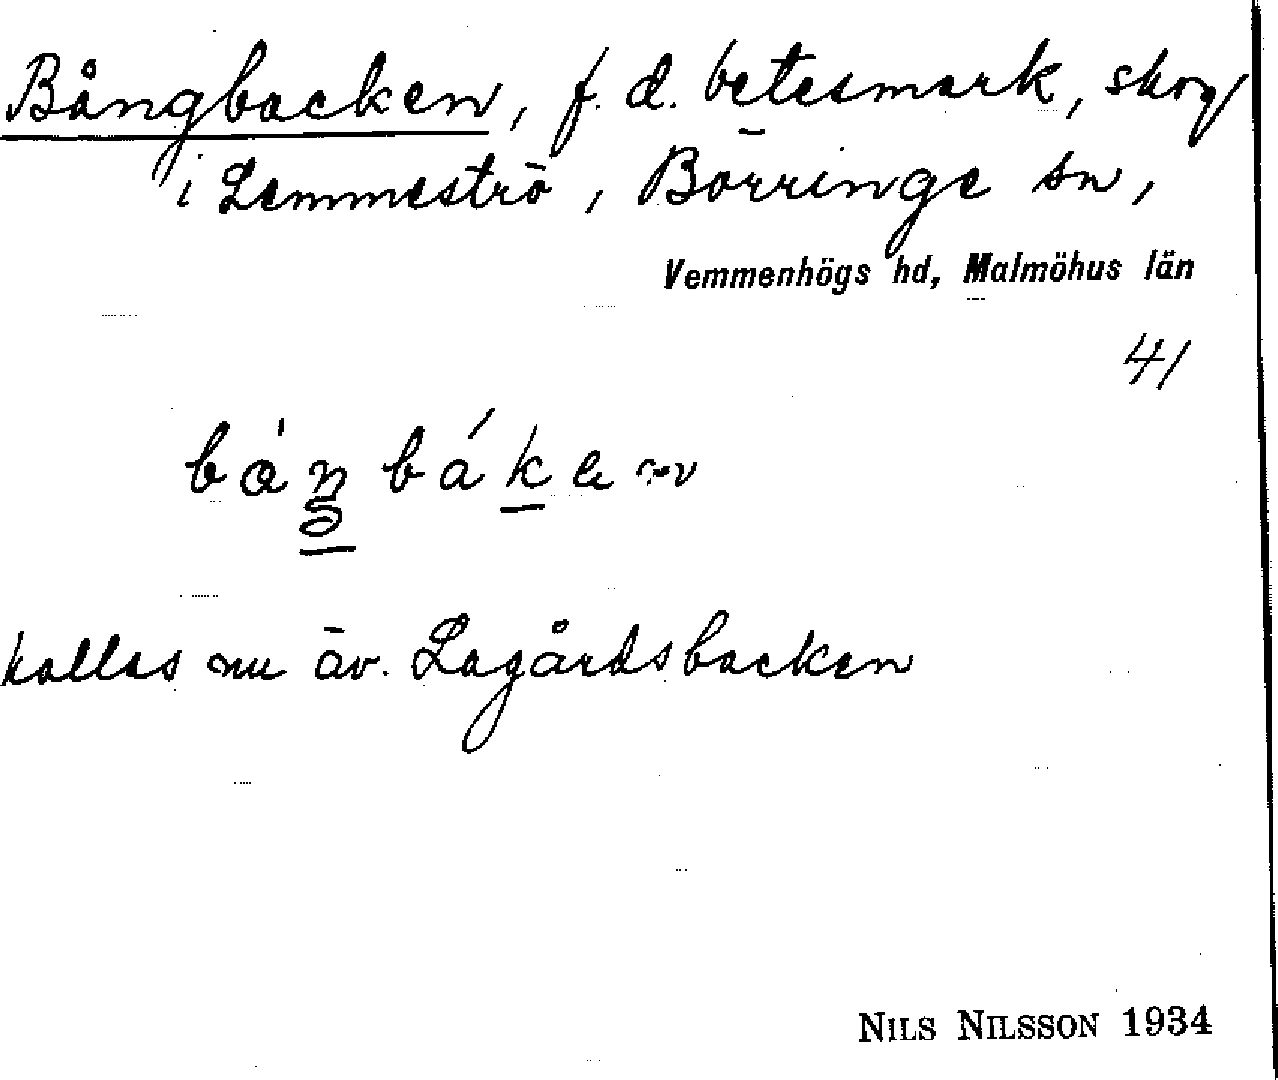 Bångbacken, f. d. betesmark, skog
i Lemmeströ, Börringe sn,
Vemmenhögs hd, Malmöhus län
41
kallas nu äv. Lagårdsbacken
NILS NILSSON 1934